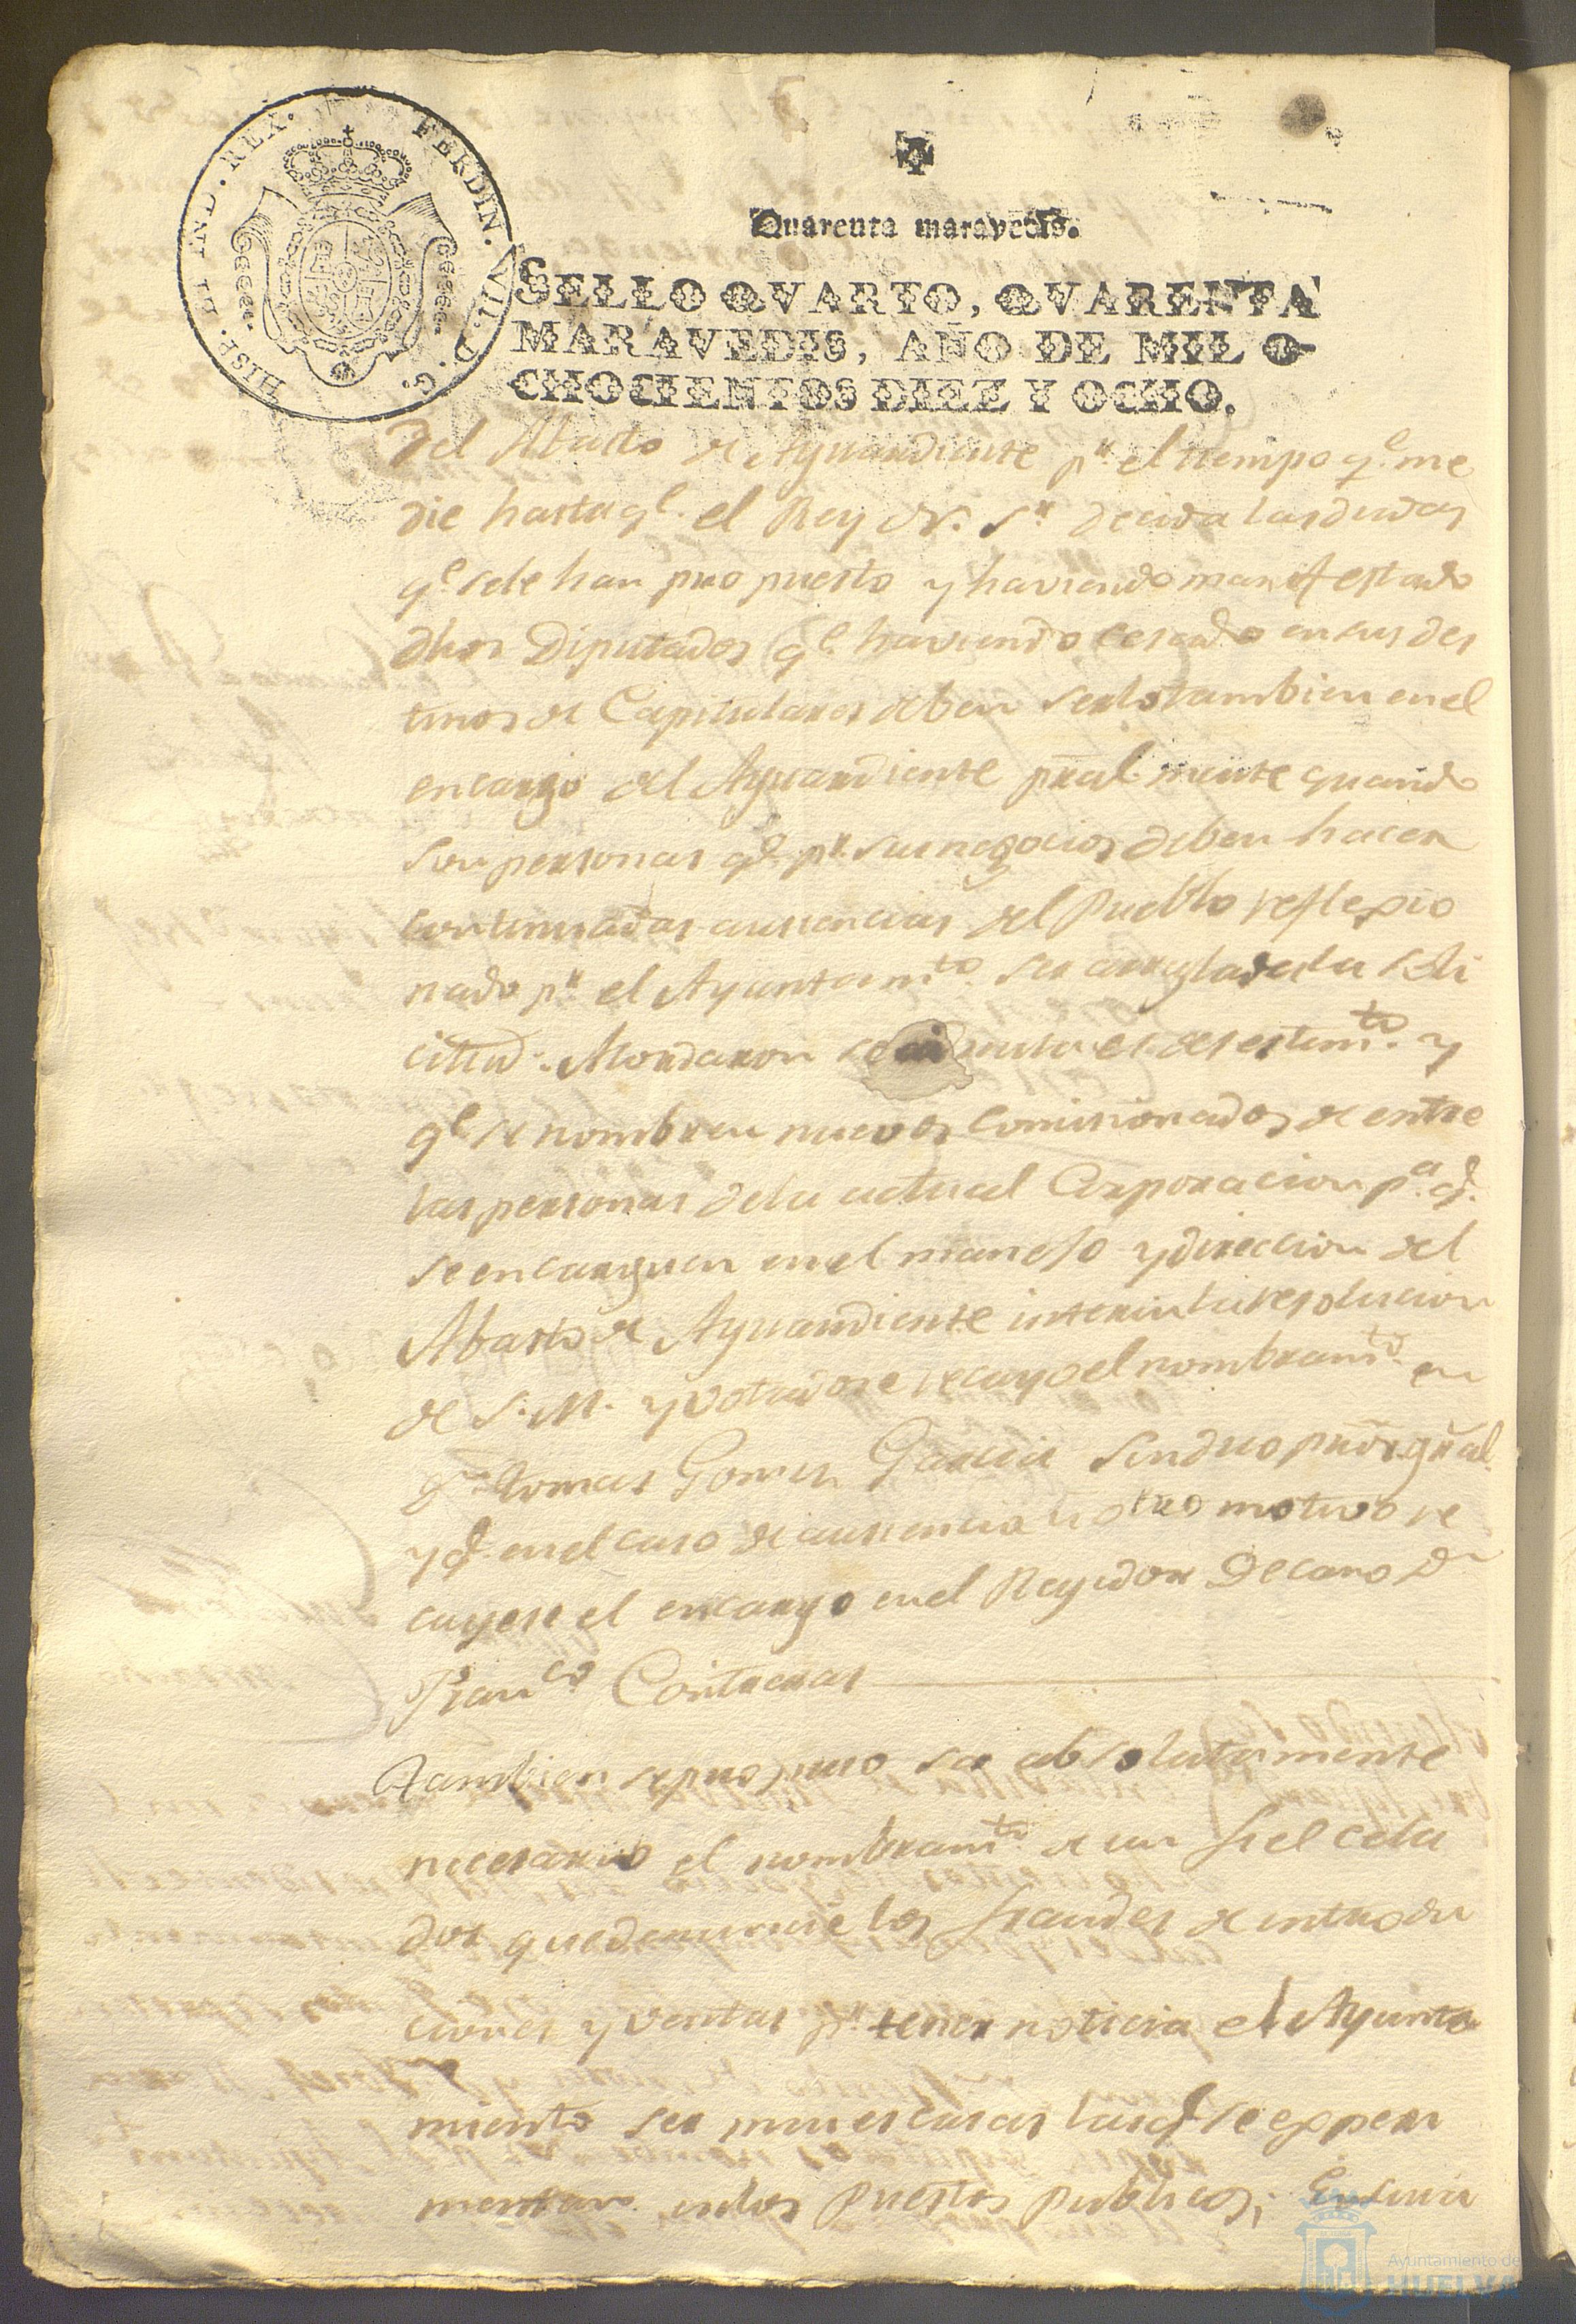 HISP. ET IND. REX. FERDIN. VII. D. G.
Quarenta maravedis.
SELLO QVARTO, QVARENTA
MARAVEDIS, AÑO DE MIL O-
CHOCIENTOS DIEZ Y OCHO.
del Abasto de Aguardiente pr. el tiempo qe. me
die hasta qe. el Rey N. Sr. decida las dudas
qe. se le han propuesto y haviendo manifestado
dhos Diputados qe. haviendo cesado en sus des
tinos de Capitulares deben serlo tambien en el
encargo del Aguardiente pral.mente quando
son personas qe. pr. sus negocios deben hacer
continuadas ausencias del Pueblo reflexio
nado pr. el Ayuntamto. ser arreglada la soli
citud: Acordaron se el desestimto. y
qe. se nombren nuevos Comisionados de entre
las personas de la actual Corporacion pa. qe.
se encarguen en el manejo y direccion del
Abasto de Aguardiente interin la resolucion
de S. M. y votadose recayo el nombramto. en
Dn. Tomas Gomez Garcia Sindico pror. gral.
y qe. en el caso de ausencia u otro motivo re
cayese el encargo en el Regidor Decano Dn.
Franco. Contreras
Tambien se propuso ser absolutamente
necesario el nombramto. de un fiel cela
dor que denuncie los fraudes de introdu
ciones y ventas pr. tener noticia el Ayunta
miento ser mui escasas las qe. se experi
mentan en los Puestos publicos;
Ayuntamiento de
HUELVA